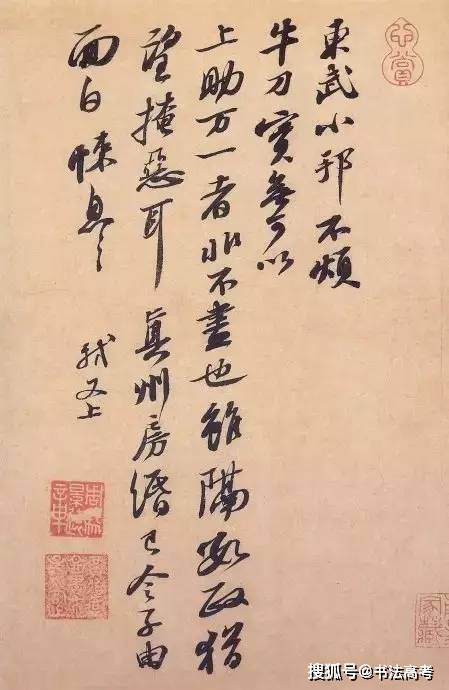 東武小邦不煩
牛刀實無可以
上助万一者非不盡也雖隔數政猶
望掩惡耳真州房緡已令子由
面白悚息々
軾又上
搜狐号@书法高考